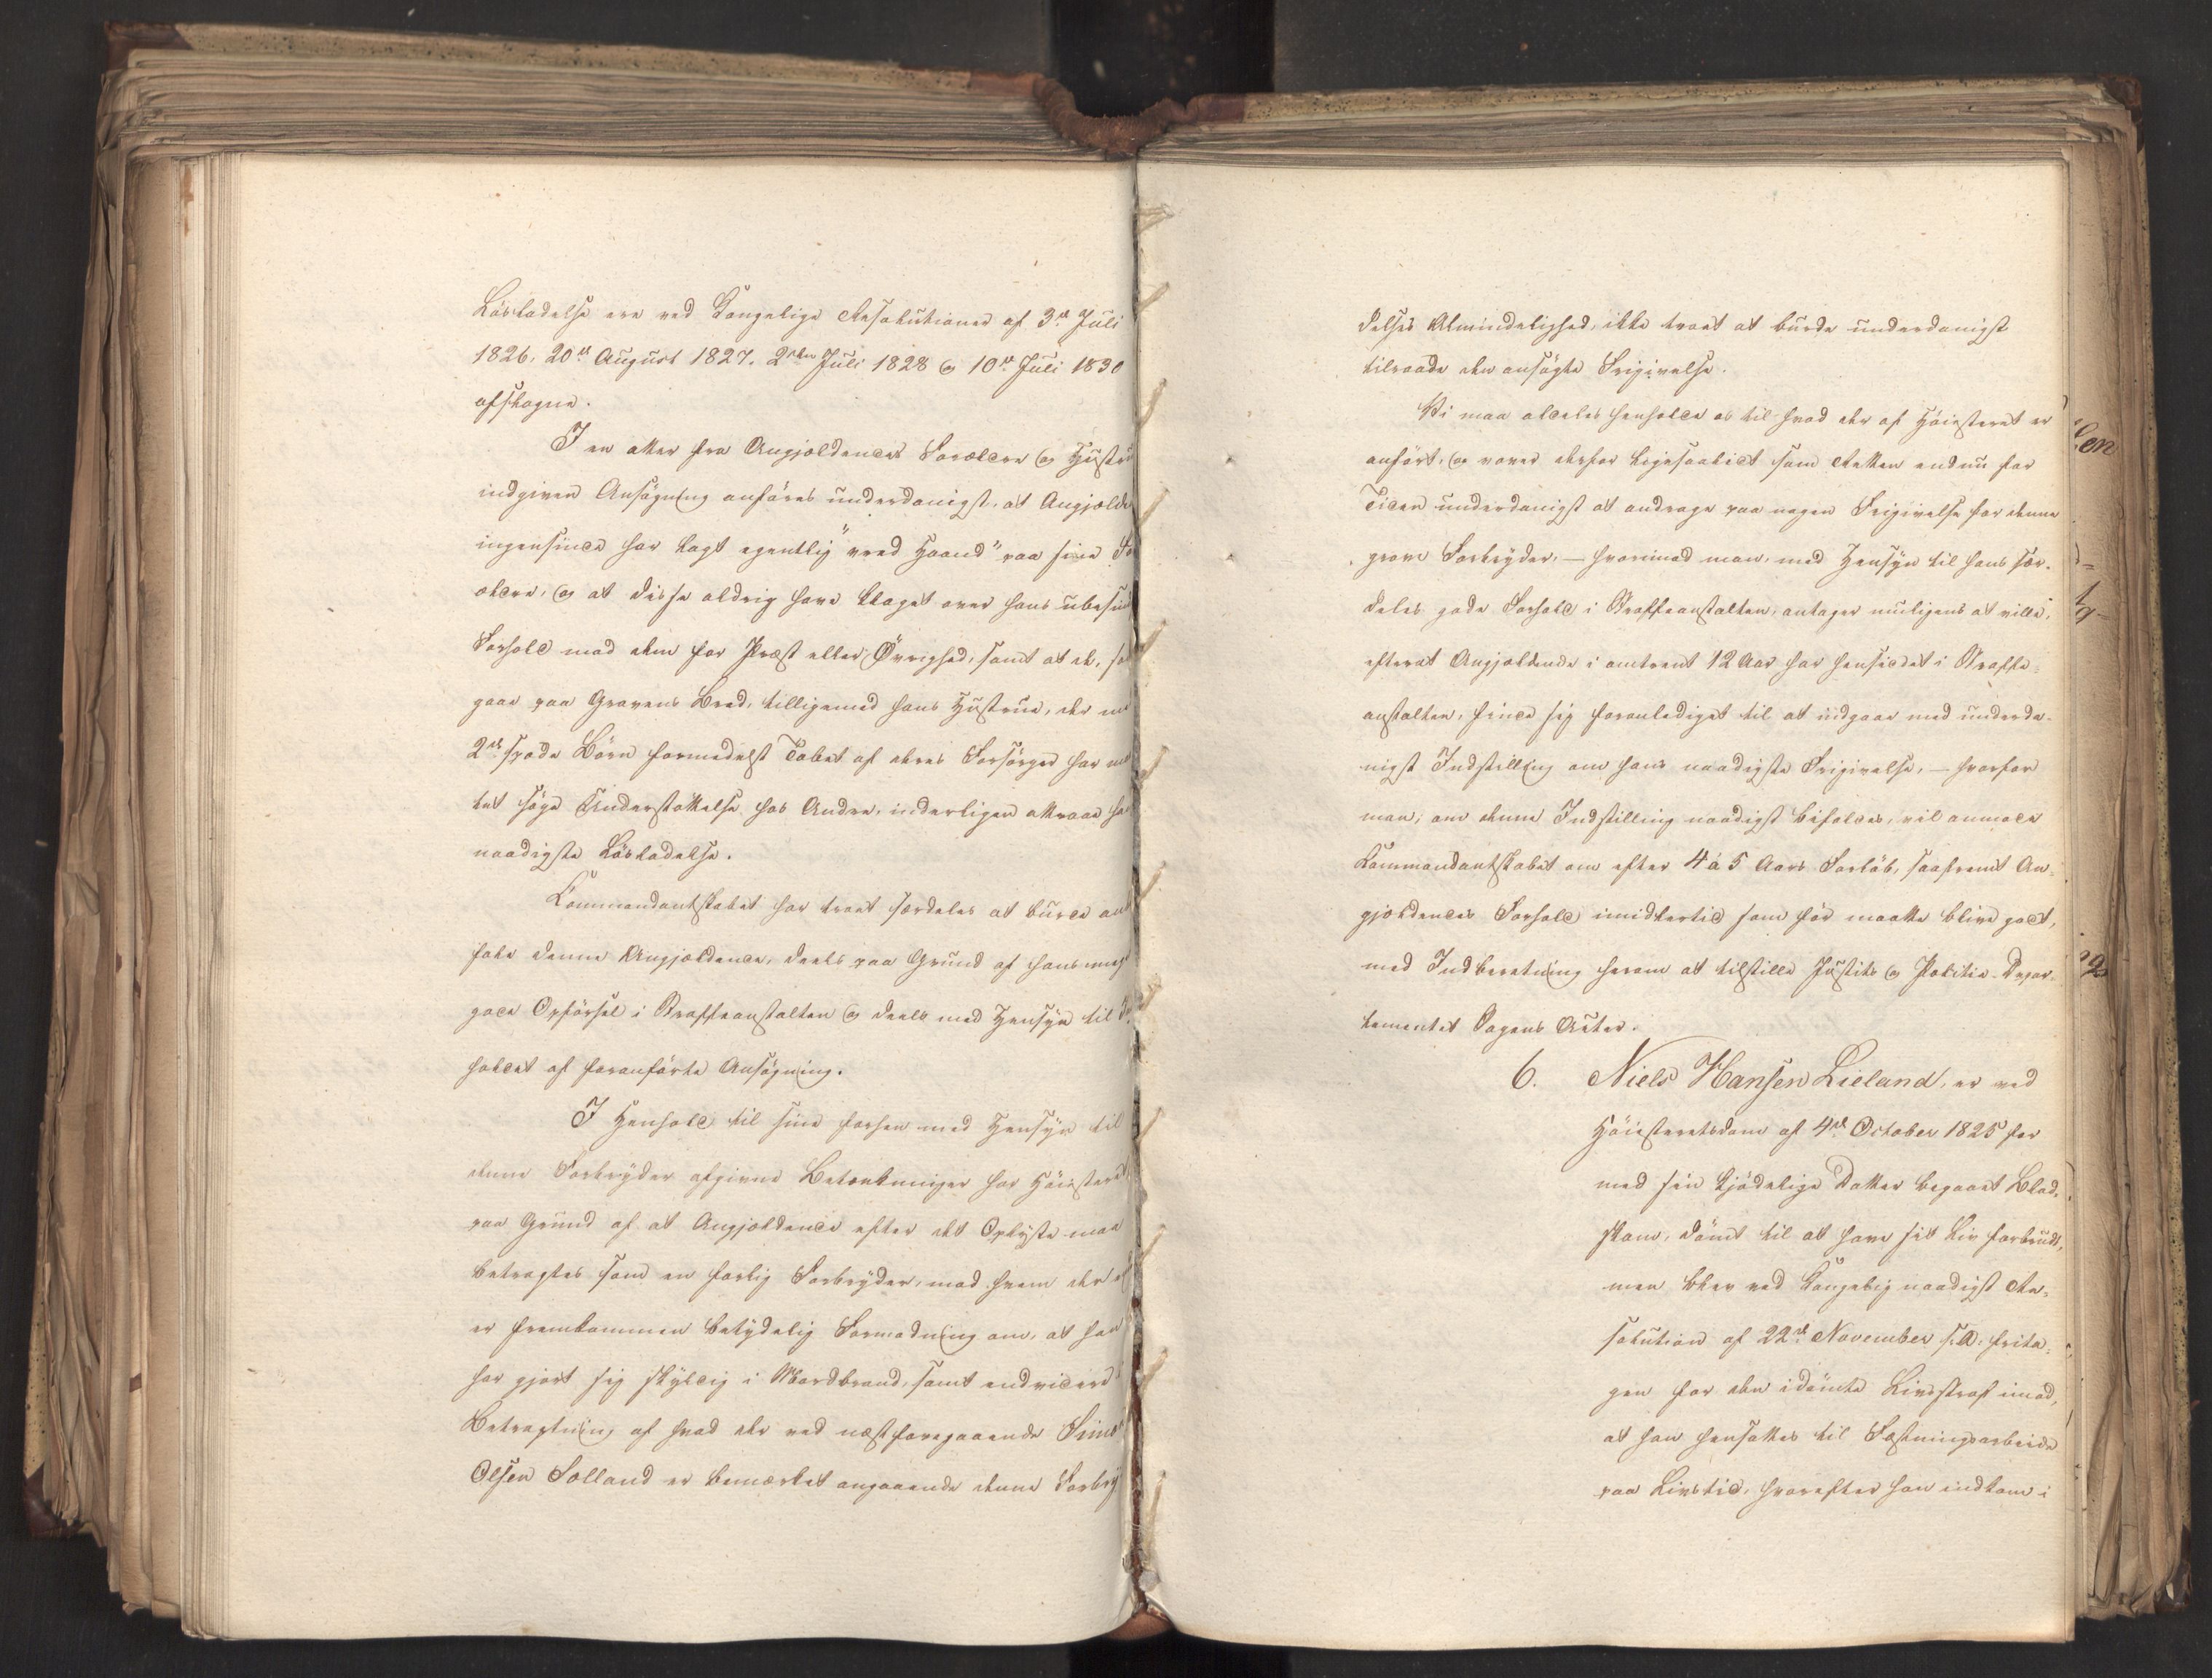 Løsladelse ere ved Kongelige Resolutioner af 3die Juli
1826, 20de August 1827, 2den Juli 1828 og 10de Juli 1830
afslagne.
I en atter fra Angjældendes Forældre og Hustru
indgiven Ansøgning anføres underdanigst, at Angjælde
ingensinde har lagt egentlig "vred Haand" paa sine For
ældre, og at disse aldrig have klaget over hans ubesin
Forhold mod dem for Præst eller Øvrighed, samt at de, som
gaae paa Gravens Bred, tilligemed hans Hustrue, der med
2de spæde Børn formedelst Tabet af deres Forsørger har
tet søge Understøttelse hos Andre, inderligen attraae hans
naadigste Løsladelse.
Kommandantskabet har troet særdeles at burde an
fale denne Angjældende, deels paa Grund af hans meget
gode Opførsel i Straffeanstalten og deels med Hensyn til Ind
holdet af foranførte Ansøgning.
I Henhold til sine forhen med Hensyn til
denne Forbryder afgivne Betænkninger har Høiesteret
paa Grund af at Angjældende efter det Oplyste maa
betragtes som en farlig Forbryder, mod hvem der
er fremkommen betydelig Formodning om, at han
har gjort sig skyldig i Mordbrand, samt endvidere i
Betragtning af hvad der ved næstforegaaende Simon
Olsen Solland er bemærket angaaende denne Forbry
delses Almindelighed, ikke troet at burde underdanigst
tilraade den ansøgte Frigivelse.
Vi maa aldeles henholde os til hvad der af Høiesteret er
anført, og vover derfor ligesaalidt som Retten endnu for
Tiden underdanigst at andrage paa nogen Frigivelse for denne
grove Forbryder, – hvorimod man, med Hensyn til hans sær-
deles gode Forhold i Straffeanstalten, antager muligens at ville,
efterat Angjældende i omtrent 12 Aar har hensiddet i Straffe-
anstalten, finde sig foranlediget til at indgaae med underda-
nigst Indstilling om hans naadigste Frigivelse, – hvorfor
man, om denne Indstilling naadigst bifaldes, vil anmode
Kommandantskabet om efter 4 á 5 Aars Forløb, saafremt An-
gjældendes Forhold imidlertid som før maatte blive godt,
med Indberetning herom at tilstille Justits og Politie-Depar-
tementet Sagens Acter.
6. Niels Hansen Lieland, er ved
Høiesteretsdom af 4de October 1825 for
med sin kjødelige Datter begaaet Blod-
skam, dømt til at have sit Liv forbrudt,
men blev ved Kongelig naadigst Re-
solution af 22de November s. A. frita-
gen for den idømte Livsstraf imod,
at han hensattes til Fæstningsarbeide
paa Livstid, hvorefter han indkom i